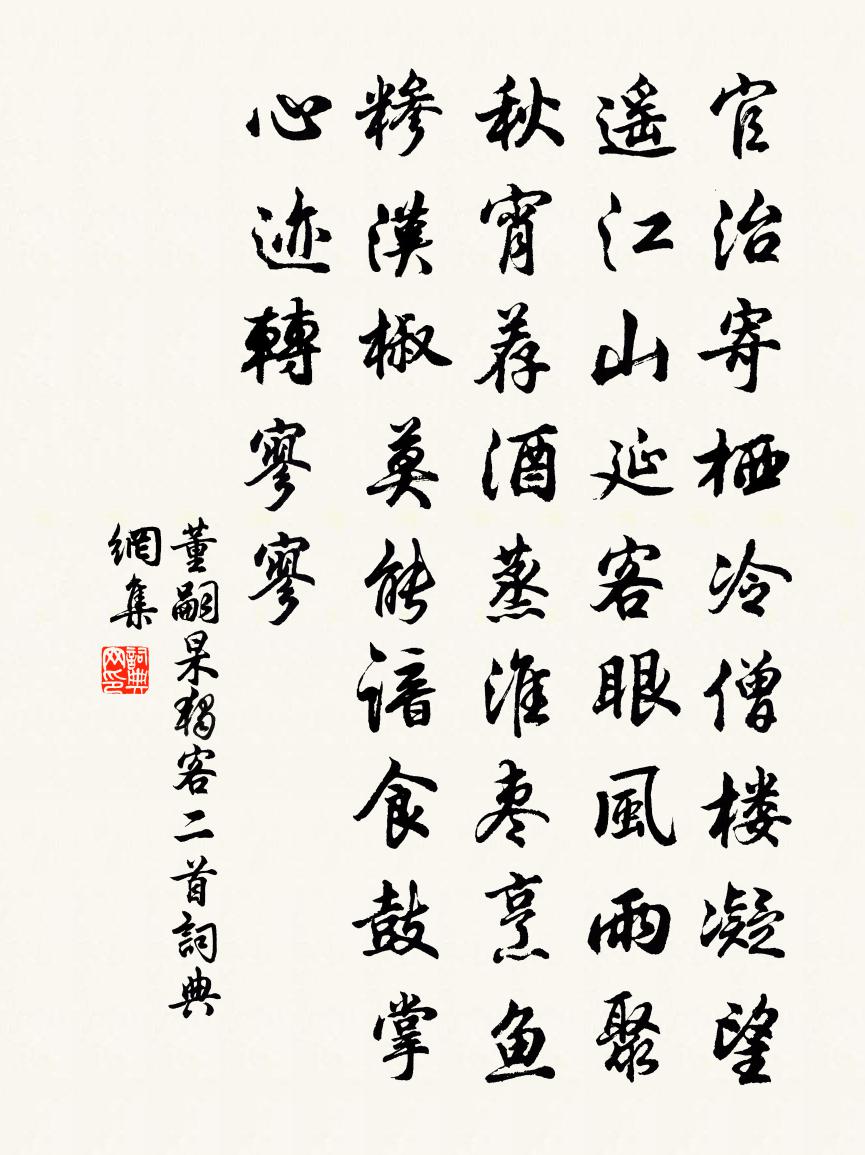 官治寄栖冷僧楼凝望
遥江山延客眼風雨聚
秋宵荐酒蒸淮枣烹鱼
糁漢椒莫能谙食鼓掌
心迹轉寥寥
董嗣杲獨客二首詞典
網集
詞典網印